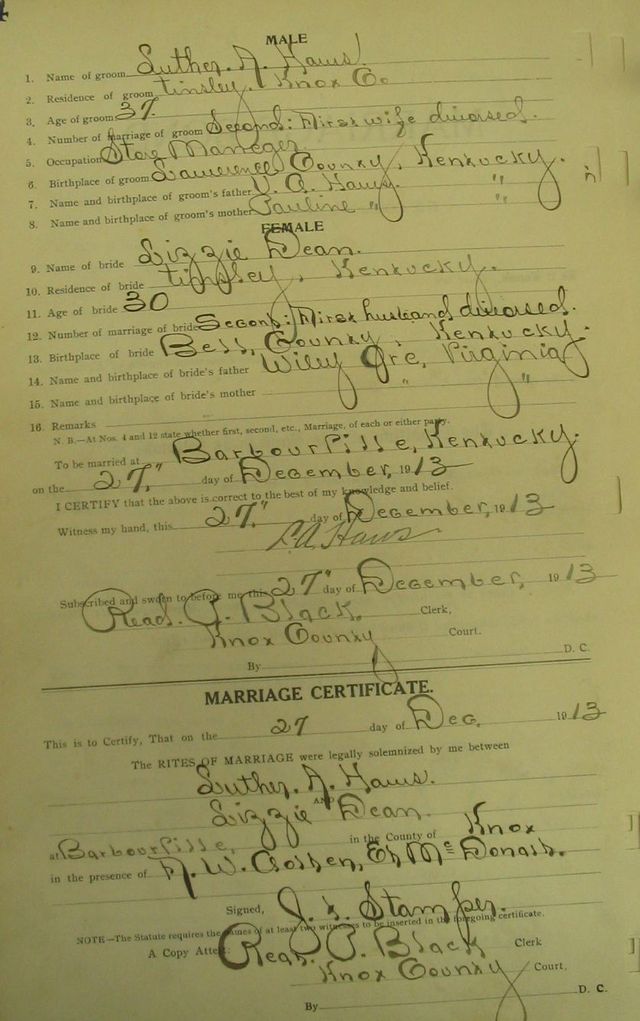 MALE
1. Name of groom Luther. A. Haws.
2. Residence of groom Tinsley. Knox Co
3. Age of groom 37.
4. Number of marriage of groom Second: First wife divorced.
5. Occupation Store Maneger
6. Birthplace of groom Lawerence County, Kentucky.
7. Name and birthplace of groom's father Haws. "
8. Name and birthplace of groom's mother Pauline " "
FEMALE
9. Name of bride Lizzie Dean.
10. Residence of bride Tinsley, Kentucky.
11. Age of bride 30
12. Number of marriage of bride Second: First husband divorced.
13. Birthplace of bride Bell, County, Kentucky.
14. Name and birthplace of bride's father Wiley Ore, Virginia
15. Name and birthplace of bride's mother " "
16. Remarks
N. B.—At Nos. 4 and 12 state whether first, second, etc., Marriage, of each or either party.
To be married at Barbourville, Kentucky.
on the 27." day of December, 1913
I CERTIFY that the above is correct to the best of my knowledge and belief.
Witness my hand, this 27." day of December, 1913
L.A. Haws
Subscribed and sworn to before me this 27" day of December, 1913
Read. P. Black. Clerk,
Knox County Court.
By D. C.
MARRIAGE CERTIFICATE.
This is to Certify, That on the 27 day of Dec. 1913
The RITES OF MARRIAGE were legally solemnized by me between
Luther. A. Haws.
AND
Lizzie Dean.
at Barbourville, in the County of Knox
in the presence of A. W. Mc Donald.
Signed, J. Stamper.
NOTE—The Statute requires the names of at least two witnesses to be inserted in the foregoing certificate.
A Copy Attest: Read. P. Black Clerk
Knox County Court.
By D. C.